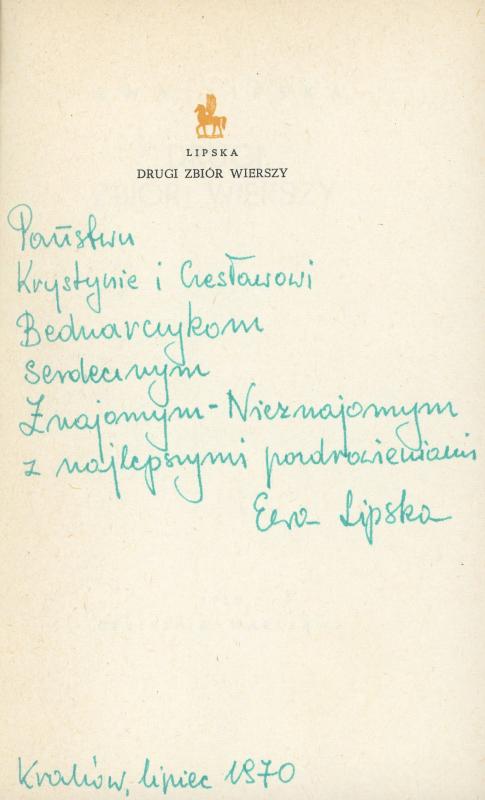 LIPSKA
DRUGI ZBIÓR WIERSZY
Państwu
Krystynie i Czesławowi
Bednarczykom
serdecznym
Znajomym - Nieznajomym
z najlepszymi pozdrowieniami
Ewa Lipska
Kraków, lipiec 1970